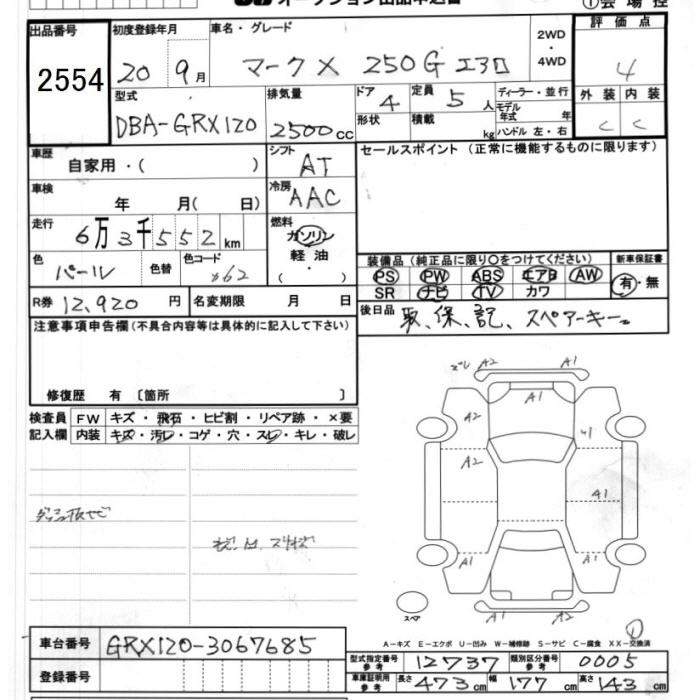 出品番号 2554
初度登録年月 20 9月
車名・グレード マークX 250G
2WD・4WD
評価点 4
型式 DBA-GRX120
排気量 2500cc
ドア 4 形状
定員 5人 積載 kg
ディーラー・並行
モデル年式 年
ハンドル 左・右
外装 C 内装 C
車歴 自家用・( )
シフト AT
セールスポイント (正常に機能するものに限ります)
車検 年 月( 日)
冷房 AAC
走行 6万3千552km
燃料 ガソリン・軽油・( )
色 パール 色替 色コード 062
装備品 (純正品に限り○をつけてください)
PS PW ABS エアB AW
SR ナビ TV カワ
新車保証書 有・無
R券 12,920円 名変期限 月 日
後日品 取、保、記、スペアーキー
注意事項申告欄 (不具合内容等は具体的に記入して下さい)
修復歴 有 [箇所 ]
検査員記入欄
FW キズ・飛石・ヒビ割・リペア跡・×要
内装 キズ・汚レ・コゲ・穴・スレ・キレ・破レ
ズレ A2 A1
A1
A2
A2
A1
A1 A1
A2 A1
スペア
A-キズ E-エクボ U-凹み W-補修跡 S-サビ C-腐食 XX-交換済
車台番号 GRX120-3067685
型式指定番号 参考 12737 類別区分番号 参考 0005
登録番号
車庫証明用 参考 長さ 473cm 幅 177cm 高さ 143cm